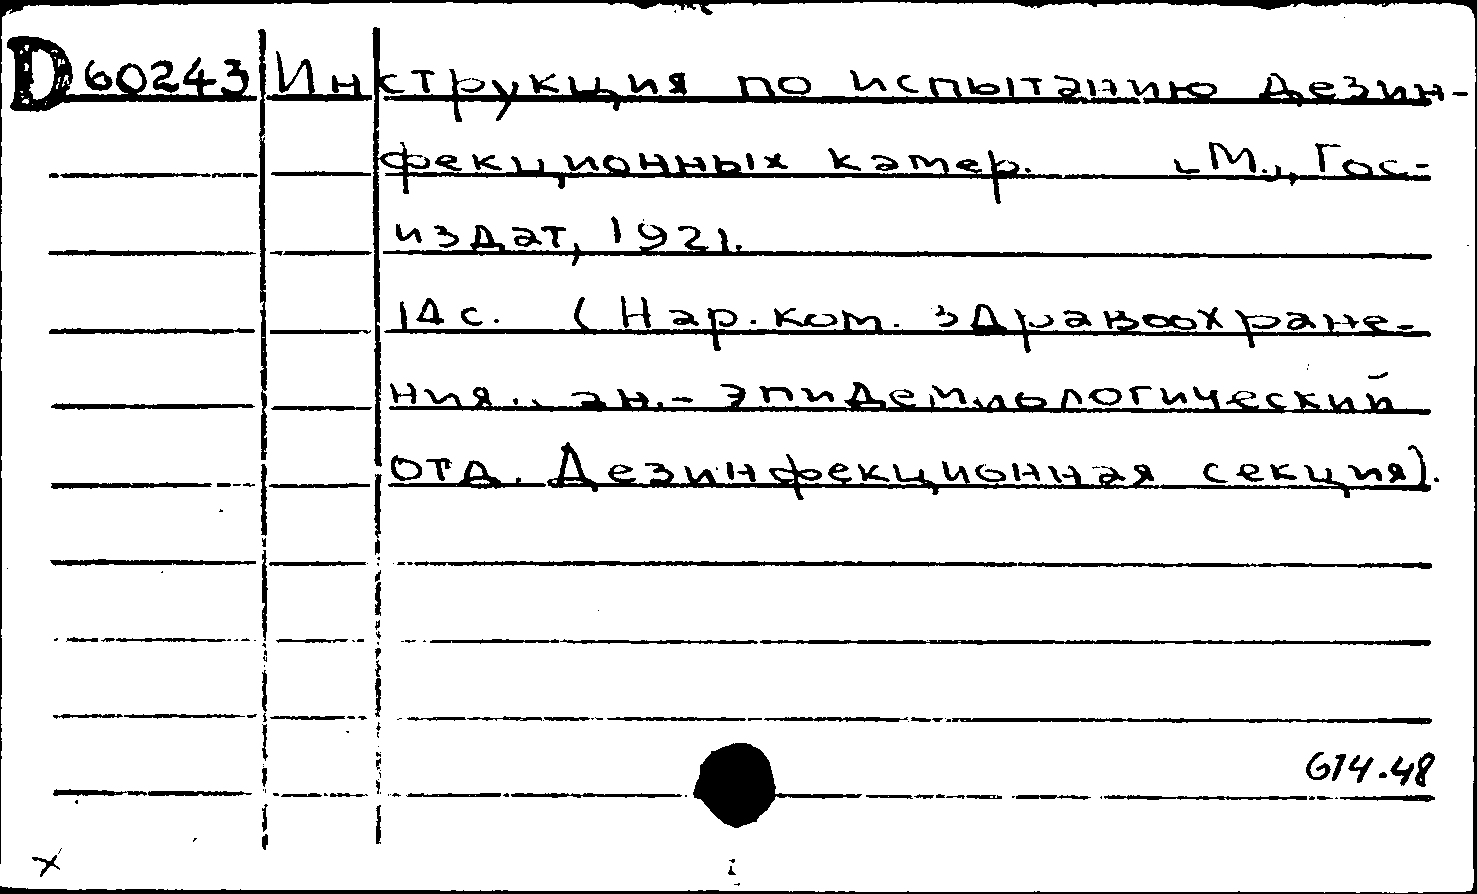 D60243 Инструкция по испытанию дезин-
фекционных камер. [М.], Гос-
издат, 1921.
14 с. (Нар. ком. здравоохране-
ния. эпидемиологический
отд. Дезинфекционная секция).
614.48